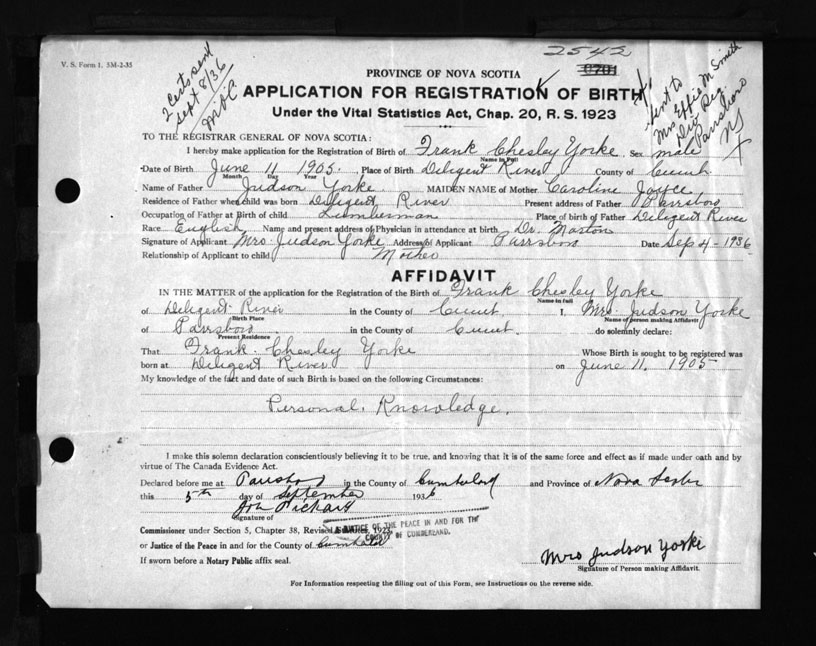 2542
V. S. Form 1. 5M-2-35
2 Certs sent
Sept 8/36
Sent to
Mrs Effie M Smith
Div Reg
Parrsboro
NS
PROVINCE OF NOVA SCOTIA
APPLICATION FOR REGISTRATION OF BIRTH
Under the Vital Statistics Act, Chap. 20, R. S. 1923
TO THE REGISTRAR GENERAL OF NOVA SCOTIA:
I hereby make application for the Registration of Birth of Frank Chesley Yorke, Sex male
Name in Full
Date of Birth June 11 1905. Place of Birth Diligent River County of Cumb.
Month Day Year
Name of Father Judson Yorke MAIDEN NAME of Mother Caroline Joyce
Residence of Father when child was born Diligent River Present address of Father Parrsboro
Occupation of Father at Birth of child Lumberman Place of birth of Father Diligent River
Race English Name and present address of Physician in attendance at birth Dr.
Signature of Applicant Mrs Judson Yorke Address of Applicant Parrsboro Date Sep 4 - 1936
Relationship of Applicant to child Mother
AFFIDAVIT
IN THE MATTER of the application for the Registration of the Birth of Frank Chesley Yorke
Name in full
of Diligent River in the County of Cumb. I, Mrs. Judson Yorke
Birth Place Name of person making Affidavit
of Parrsboro in the County of Cumb. do solemnly declare:
Present Residence
That Frank Chesley Yorke Whose Birth is sought to be registered was
born at Diligent River on June 11. 1905
My knowledge of the fact and date of such Birth is based on the following Circumstances:
Personal Knowledge.
I make this solemn declaration conscientiously believing it to be true, and knowing that it is of the same force and effect as if made under oath and by
virtue of The Canada Evidence Act.
Declared before me at Parrsboro in the County of Cumberland and Province of Nova Scotia
this 5th day of September 1936
Signature of
JUSTICE OF THE PEACE IN AND FOR THE
COUNTY OF CUMBERLAND.
Commissioner under Section 5, Chapter 38, Revised Statutes, 1923
or Justice of the Peace in and for the County of Cumberland
If sworn before a Notary Public affix seal.
Mrs Judson Yorke
Signature of Person making Affidavit.
For Information respecting the filling out of this Form, see Instructions on the reverse side.